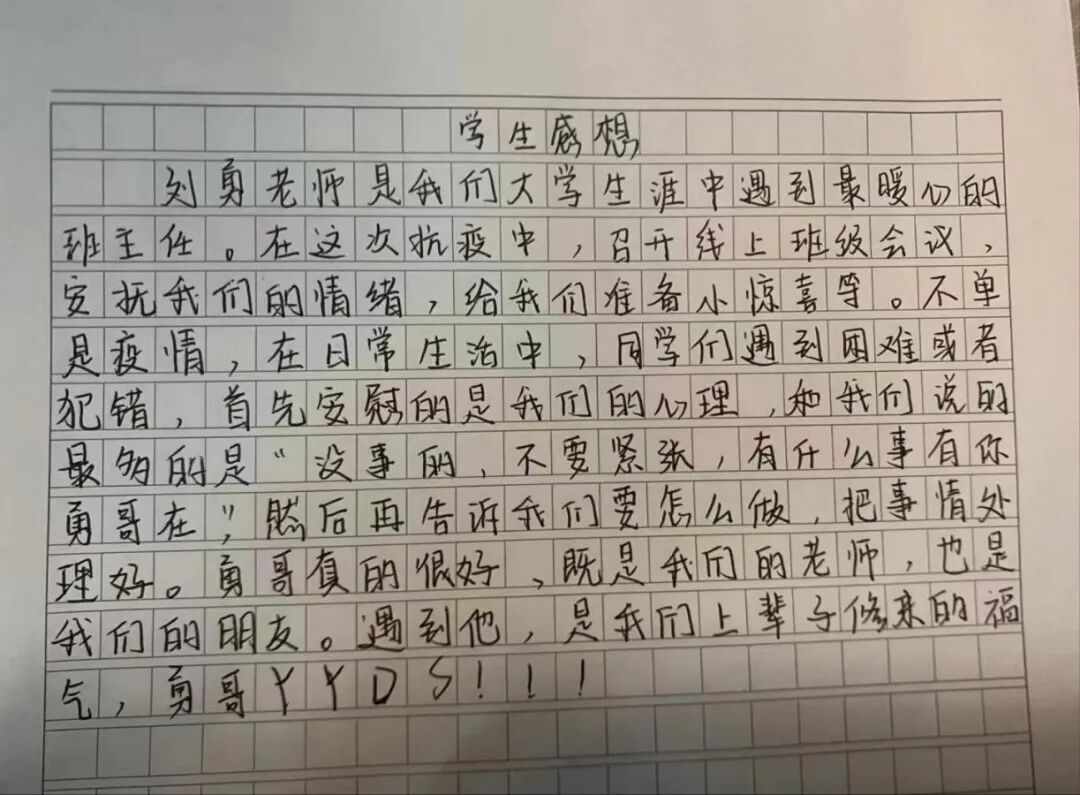 学生感想
刘勇老师是我们大学生涯中遇到最暖心的
班主任。在这次抗疫中，召开线上班级会议，
安抚我们的情绪，给我们准备小惊喜等。不单
是疫情，在日常生活中，同学们遇到困难或者
犯错，首先安慰的是我们的心理，和我们说的
最多的是“没事的，不要紧张，有什么事有你
勇哥在”，然后再告诉我们要怎么做，把事情处
理好。勇哥真的很好，既是我们的老师，也是
我们的朋友。遇到他，是我们上辈子修来的福
气，勇哥YYDS！！！